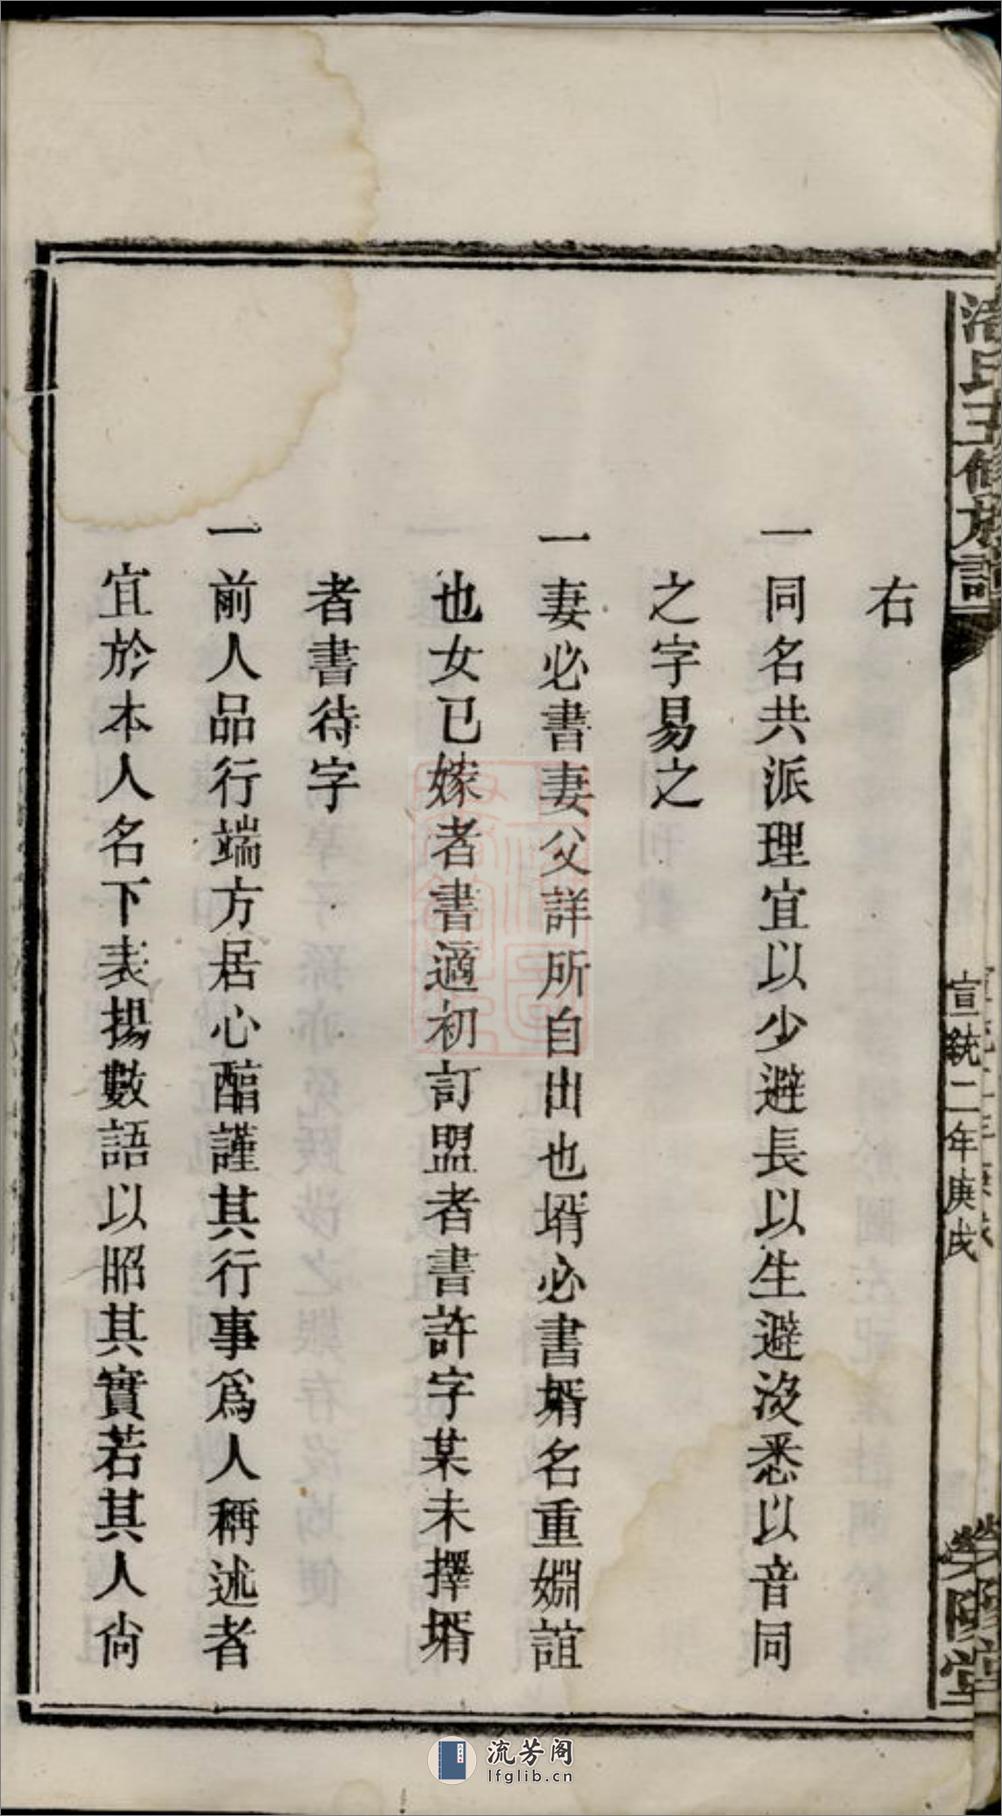 氏五修族譜
宣統二年庚戌
榮陽堂
右
一同名共派理宜以少避長以生避沒悉以音同
之字易之
一妻必書妻父詳所自出也壻必書壻名重婣誼
也女已嫁者書適初訂盟者書許字某未擇壻
者書待字
一前人品行端方居心醕謹其行事爲人稱述者
宜於本人名下表揚數語以昭其實若其人尙
流芳阁
lfglib.cn